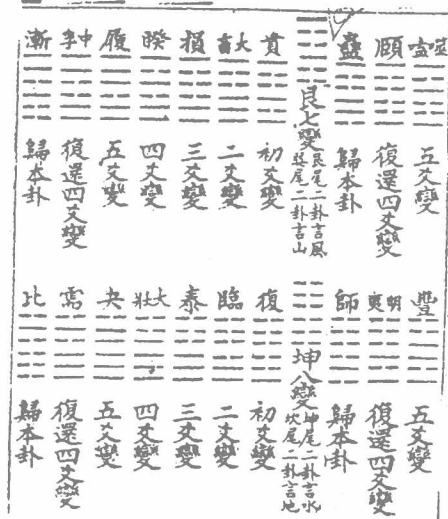 噬嗑 五爻變
頤 復還四爻變
蠱 歸本卦
艮七變 艮尾二卦言風 巽尾二卦言山
賁 初爻變
大畜 二爻變
損 三爻變
睽 四爻變
履 五爻變
中孚 復還四爻變
漸 歸本卦
豐 五爻變
明夷 復還四爻變
師 歸本卦
坤八變 坤尾二卦言水 坎尾二卦言地
復 初爻變
臨 二爻變
泰 三爻變
大壯 四爻變
夬 五爻變
需 復還四爻變
比 歸本卦